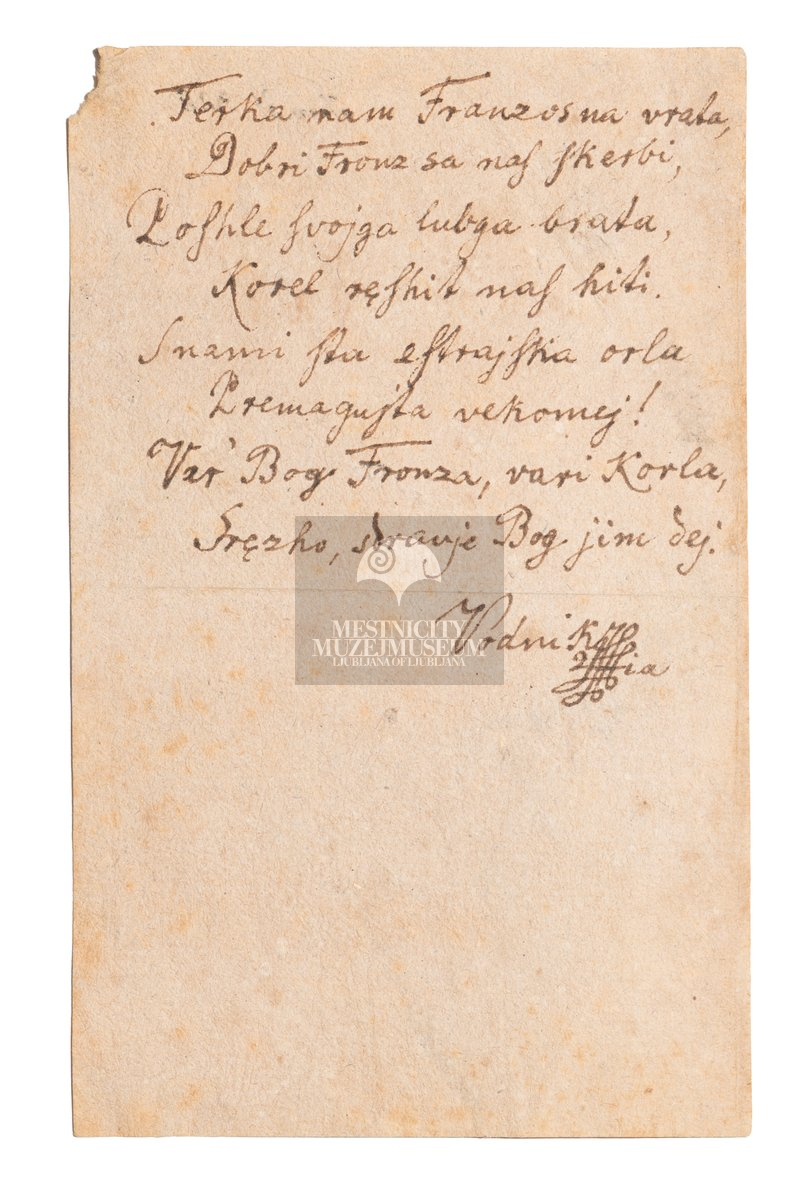 Terka nam Franzos na vrata,
Dobri Fronz sa naſ ſkerbi,
Poſhle ſvojga lubga brata,
Korel ręſhit naſ hiti.
Snami ſta eſtrajſka orla
Premagujſta vekomej!
Var' Bog Fronza, vari Korla,
Sręzho, sdravje Bog jim dej.
Vodnik
MESTNI CITY
MUZEJ MUSEUM
LJUBLJANA OF LJUBLJANA